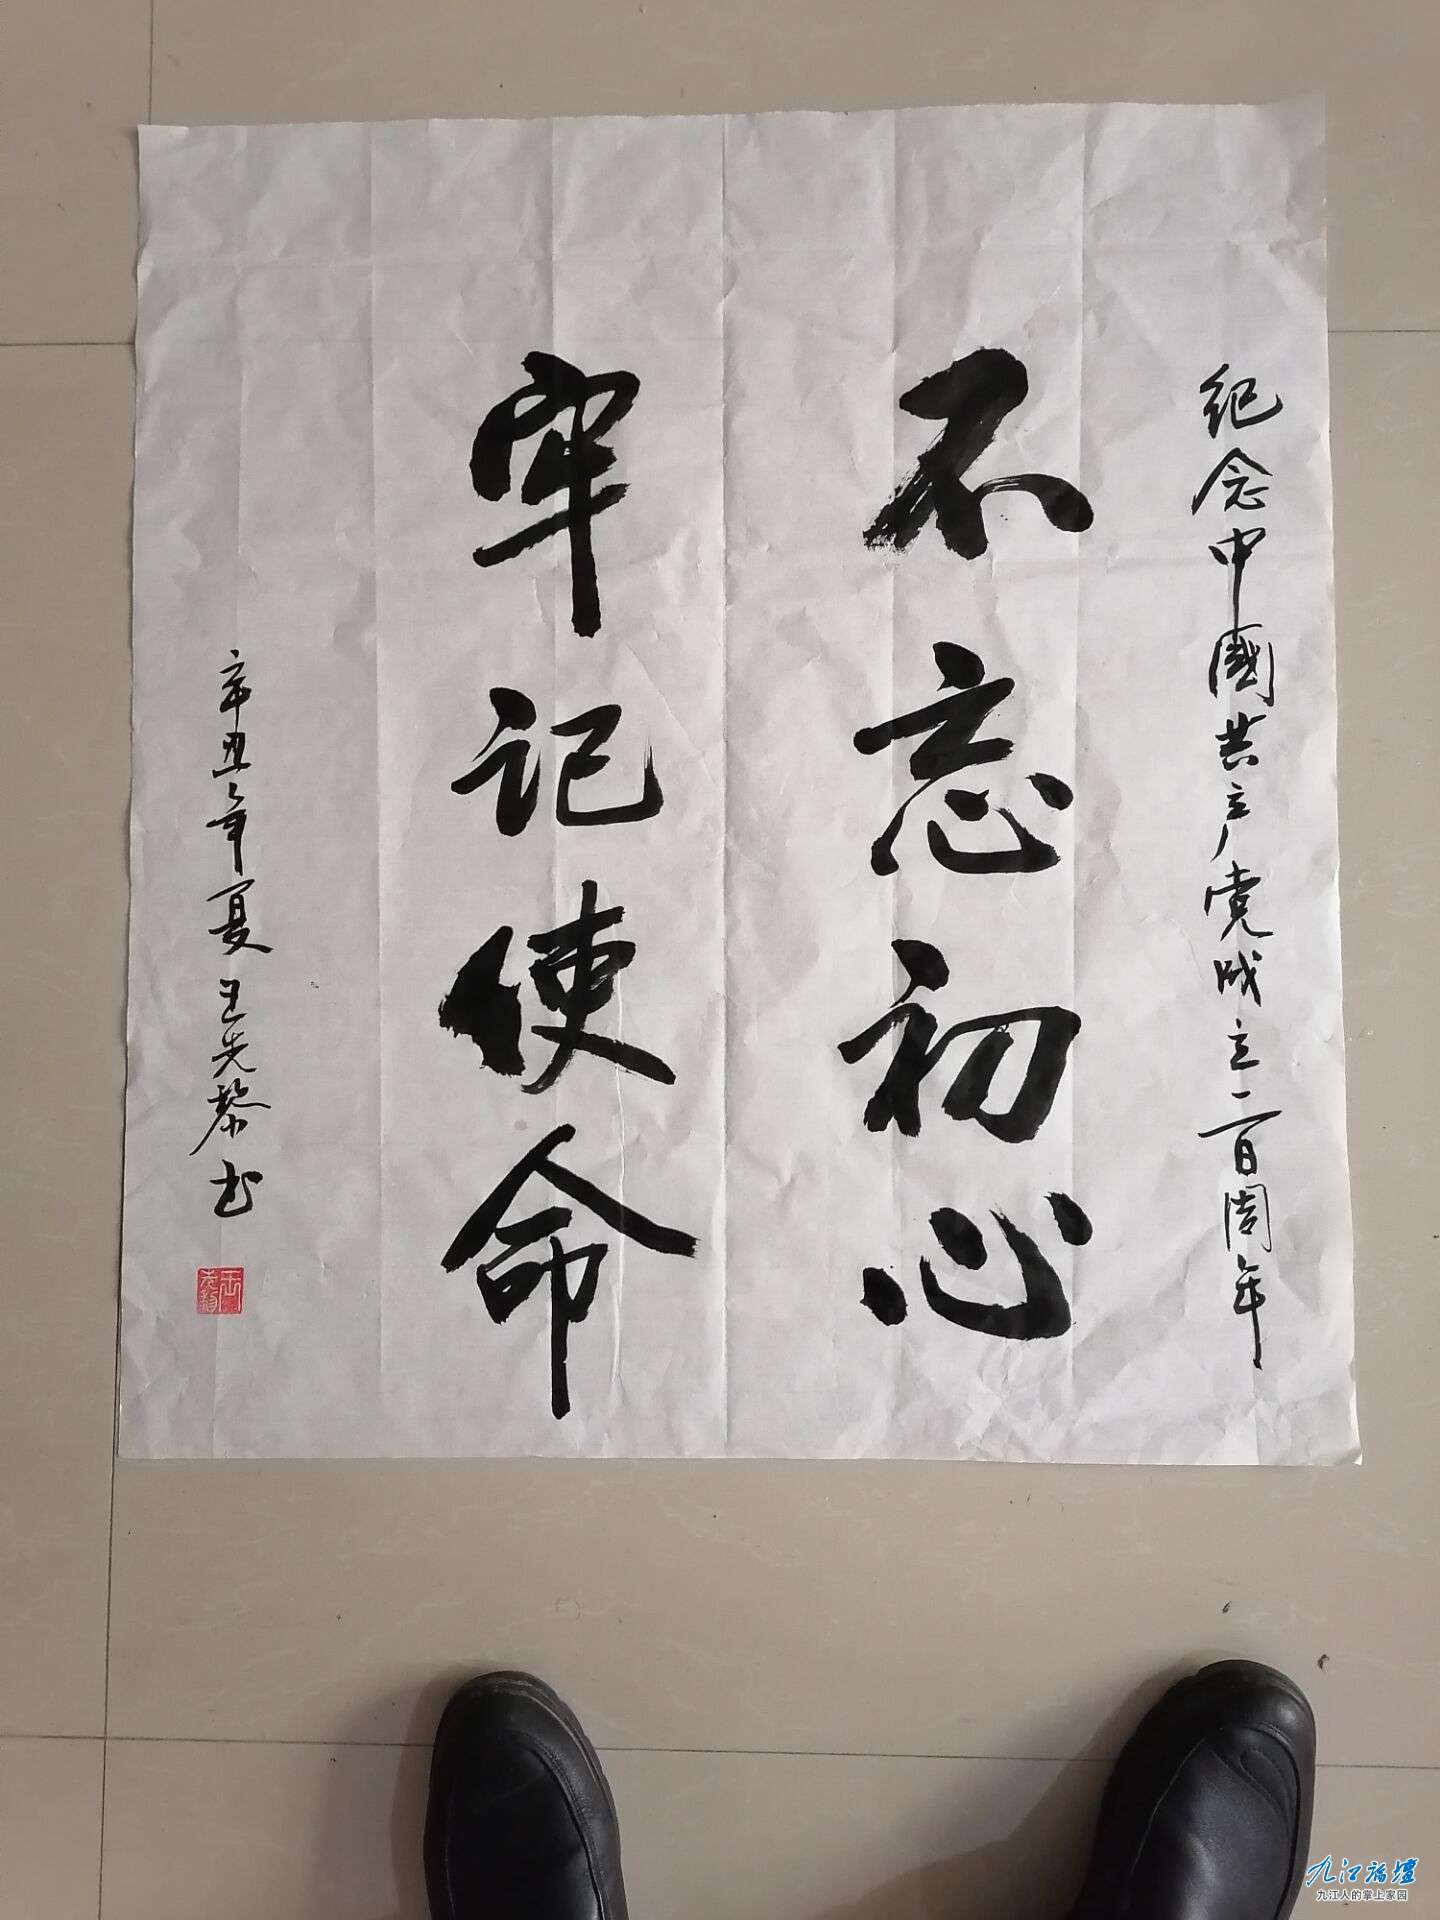 纪念中國共产党成立一百周年
不忘初心
牢记使命
辛丑年夏 王先黎书
九江论坛
九江人的掌上家园